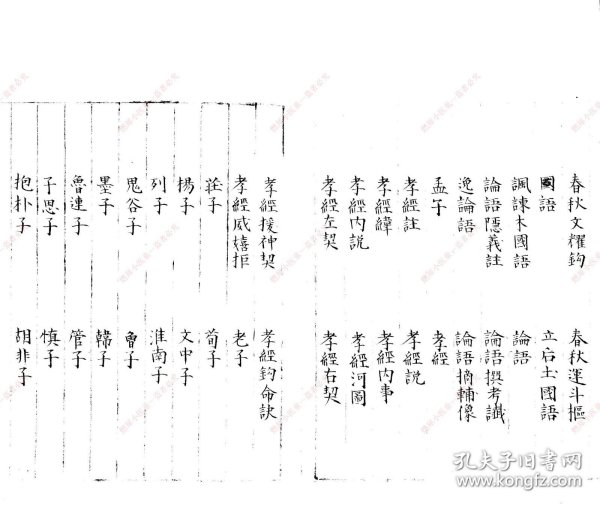 春秋文耀鈎　春秋運斗樞
國語　立后土國語
諷諫木國語　論語
論語隱義註　論語撰考讖
逸論語　論語摘輔像
孟子　孝經
孝經註　孝經説
孝經緯　孝經内事
孝經内説　孝經河圖
孝經左契　孝經右契
孝經援神契　孝經鈎命訣
孝經威嬉拒　老子
莊子　荀子
揚子　文中子
列子　淮南子
鬼谷子　曾子
墨子　韓子
魯連子　管子
子思子　慎子
抱朴子　胡非子
孔夫子旧书网
www.kongfz.com